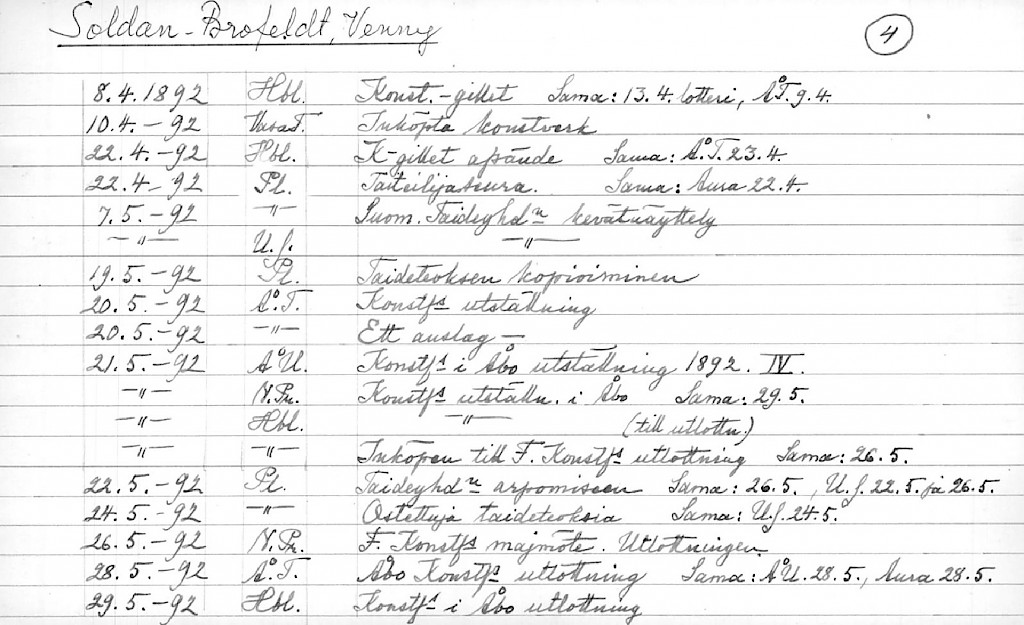 Soldan-Brofeldt, Venny 4
8.4.1892 Hbl. Konst.-gillet Sama: 13.4. lotteri, ÅT. 9.4.
10.4.-92 VasaT. Inköpta konstverk
22.4.-92 Hbl. K-gillet afsände Sama: Å.T. 23.4.
22.4-92 Pl. Taiteilijaseura. Sama: Aura 22.4.
7.5.-92 -"- Suom. Taideyhdn kevätnäyttely
-"- U.S. -"-
19.5.-92 Pl. Taideteoksen kopioiminen
20.5.-92 Å.T. Konstfs utställning
20.5.-92 -"- Ett anslag -
21.5.-92 ÅU. Konstfs i Åbo utställning 1892. IV.
-"- N.Pr. Konstfs utställn. i Åbo Sama: 29.5.
-"- Hbl. -"- (till utlottn.)
-"- -"- Inköpen till F. Konstfs utlottning Sama: 26.5.
22.5.-92 Pl. Taideyhdn arpomiseen Sama: 26.5., U.S. 22.5. ja 26.5.
24.5.-92 -"- Ostettuja taideteoksia Sama: U.S. 24.5.
26.5.-92 N.Pr. F. Konstfs majmöte. Utlottningen
28.5.-92 Å.T. Åbo Konstfs utlottning Sama: ÅU. 28.5., Aura 28.5.
29.5.-92 Hbl. Konstfs i Åbo utlottning